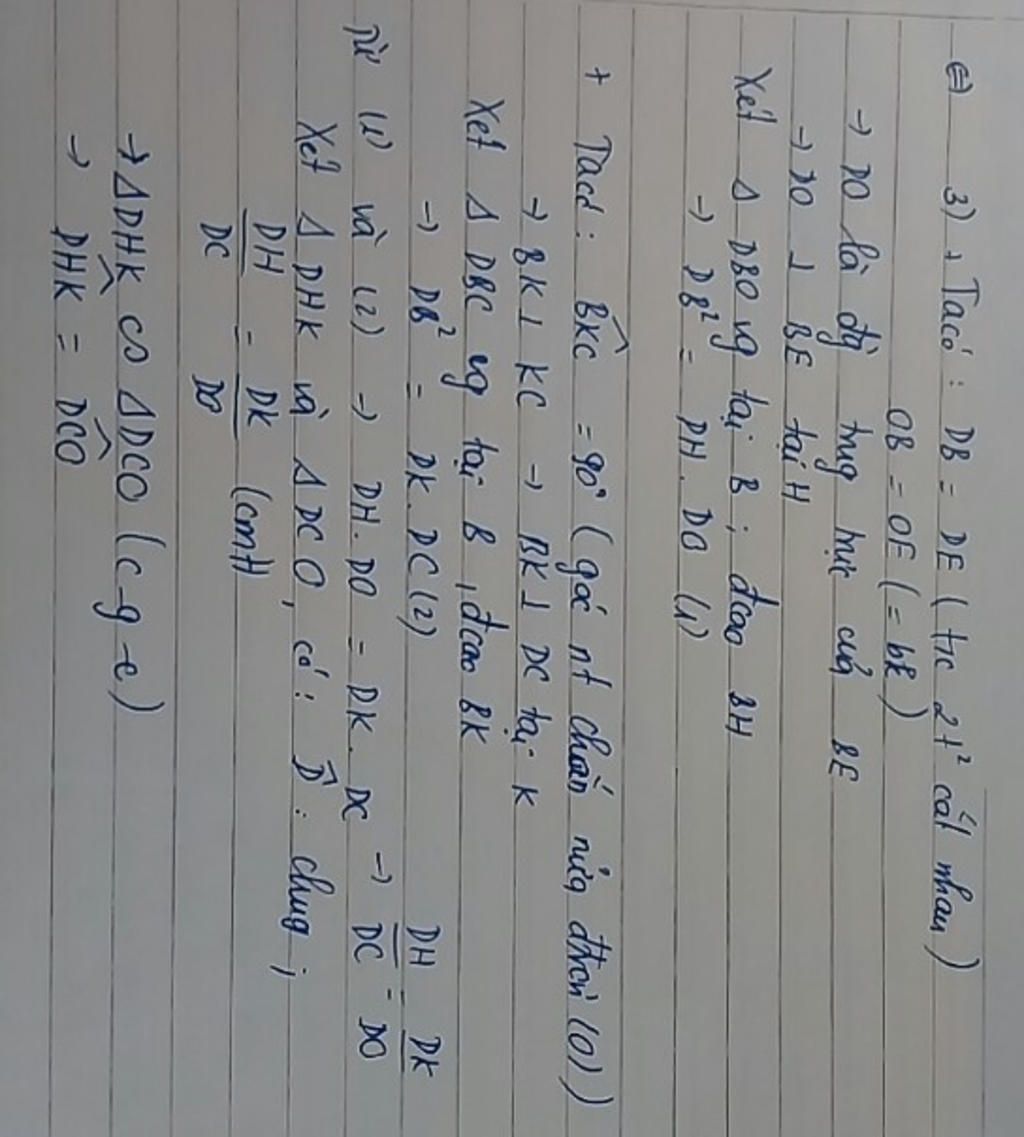 ⇔ 3) + Ta có : DB = DE ( t/c 2 t² cắt nhau )
OB = OE ( = bk )
→ DO là đg trung trực của BE
→ DO ⊥ BE tại H
Xét Δ DBO vg tại B ; đcao BH
→ DB² = DH . DO (1)
+ Ta có : BKC = 90° ( góc nt chắn nửa đtròn (O) )
→ BK ⊥ KC → BK ⊥ DC tại K
Xét Δ DBC vg tại B , đcao BK
→ DB² = DK . DC (2)
Từ (1) và (2) → DH . DO = DK . DC → DH/DC = DK/DO
Xét Δ DHK và Δ DCO , có : D : chung ;
DH/DC = DK/DO (cmt)
→ Δ DHK ∽ Δ DCO ( c-g-c )
→ DHK = DCO